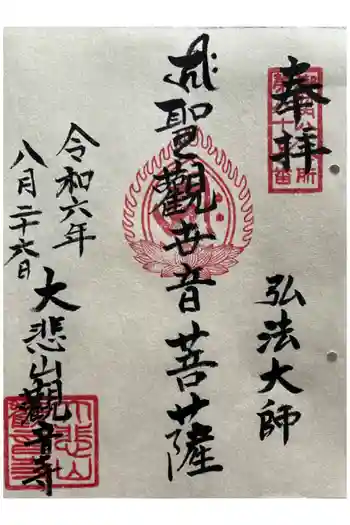 奉拝
弘法大師
聖観世音菩薩
令和六年
八月二十六日
大悲山観音寺